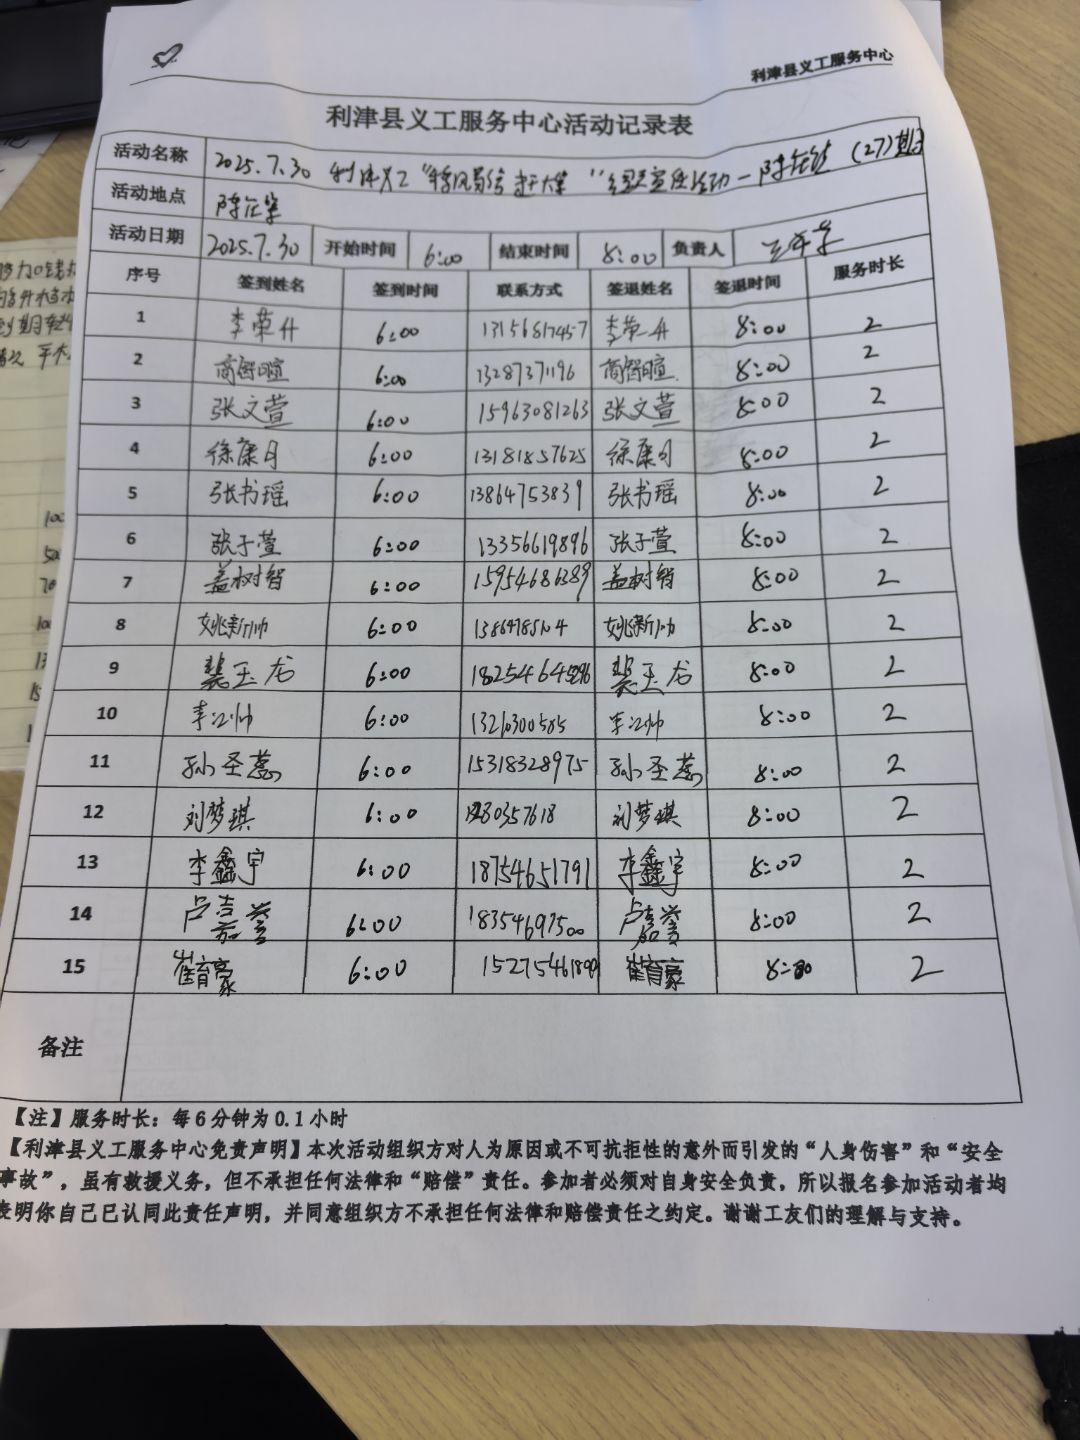 利津县义工服务中心
利津县义工服务中心活动记录表
活动名称 2025.7.30 利津义工 (27)期
活动地点
活动日期 2025.7.30 开始时间 6:00 结束时间 8:00 负责人
序号 签到姓名 签到时间 联系方式 签退姓名 签退时间 服务时长
1 李荣升 6:00 13156817457 李荣升 8:00 2
2 商智暄 6:00 13287371196 商智暄 8:00 2
3 张文萱 6:00 15963081263 张文萱 8:00 2
4 徐康月 6:00 13181857625 徐康月 8:00 2
5 张书瑶 6:00 13864753839 张书瑶 8:00 2
6 张子萱 6:00 13356619896 张子萱 8:00 2
7 盖树智 6:00 15954686389 盖树智 8:00 2
8 姚新帅 6:00 姚新帅 8:00 2
9 裴玉龙 6:00 裴玉龙 8:00 2
10 6:00 8:00 2
11 孙圣蕊 6:00 15318328975 孙圣蕊 8:00 2
12 刘梦琪 6:00 刘梦琪 8:00 2
13 李鑫宇 6:00 18754651791 李鑫宇 8:00 2
14 卢嘉誉 6:00 18354697500 卢嘉誉 8:00 2
15 崔育豪 6:00 崔育豪 8:00 2
备注
【注】服务时长：每6分钟为0.1小时
【利津县义工服务中心免责声明】本次活动组织方对人为原因或不可抗拒性的意外而引发的“人身伤害”和“安全
事故”，虽有救援义务，但不承担任何法律和“赔偿”责任。参加者必须对自身安全负责，所以报名参加活动者均
表明你自己已认同此责任声明，并同意组织方不承担任何法律和赔偿责任之约定。谢谢工友们的理解与支持。